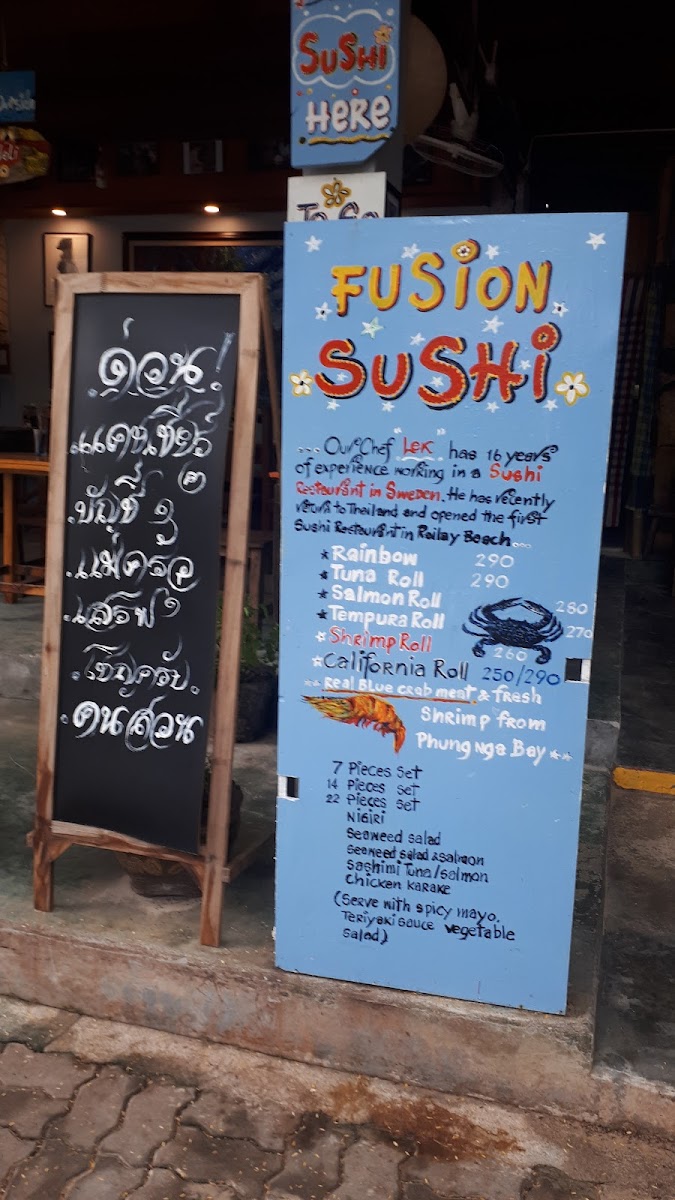 SUSHI
HERE
To Go
outside
.ด่วน!
..แคชเชียร์
.บัญชี ๆ ๒
.แม่ครัว
.เสริฟ ๆ
.เชิญครับ.
.คนสวน
FUSION
SUSHI
... Our Chef "Lek" has 16 years
of experience working in a Sushi
Restaurant in Sweden. He has recently
return to Thailand and opened the first
Sushi Restaurant in Railay Beach...
★ Rainbow 290
★ Tuna Roll 290
★ Salmon Roll 280
★ Tempura Roll 270
★ Shrimp Roll 260
★ California Roll 250/290
Real Blue crab meat & fresh
Shrimp from
Phung nga Bay ★★
7 Pieces Set
14 Pieces set
22 Pieces set
NiGiRi
Seaweed salad
Seaweed salad & salmon
Sashimi Tuna/salmon
Chicken KARAKE
(Serve with spicy mayo.
Teriyaki sauce vegetable
salad)